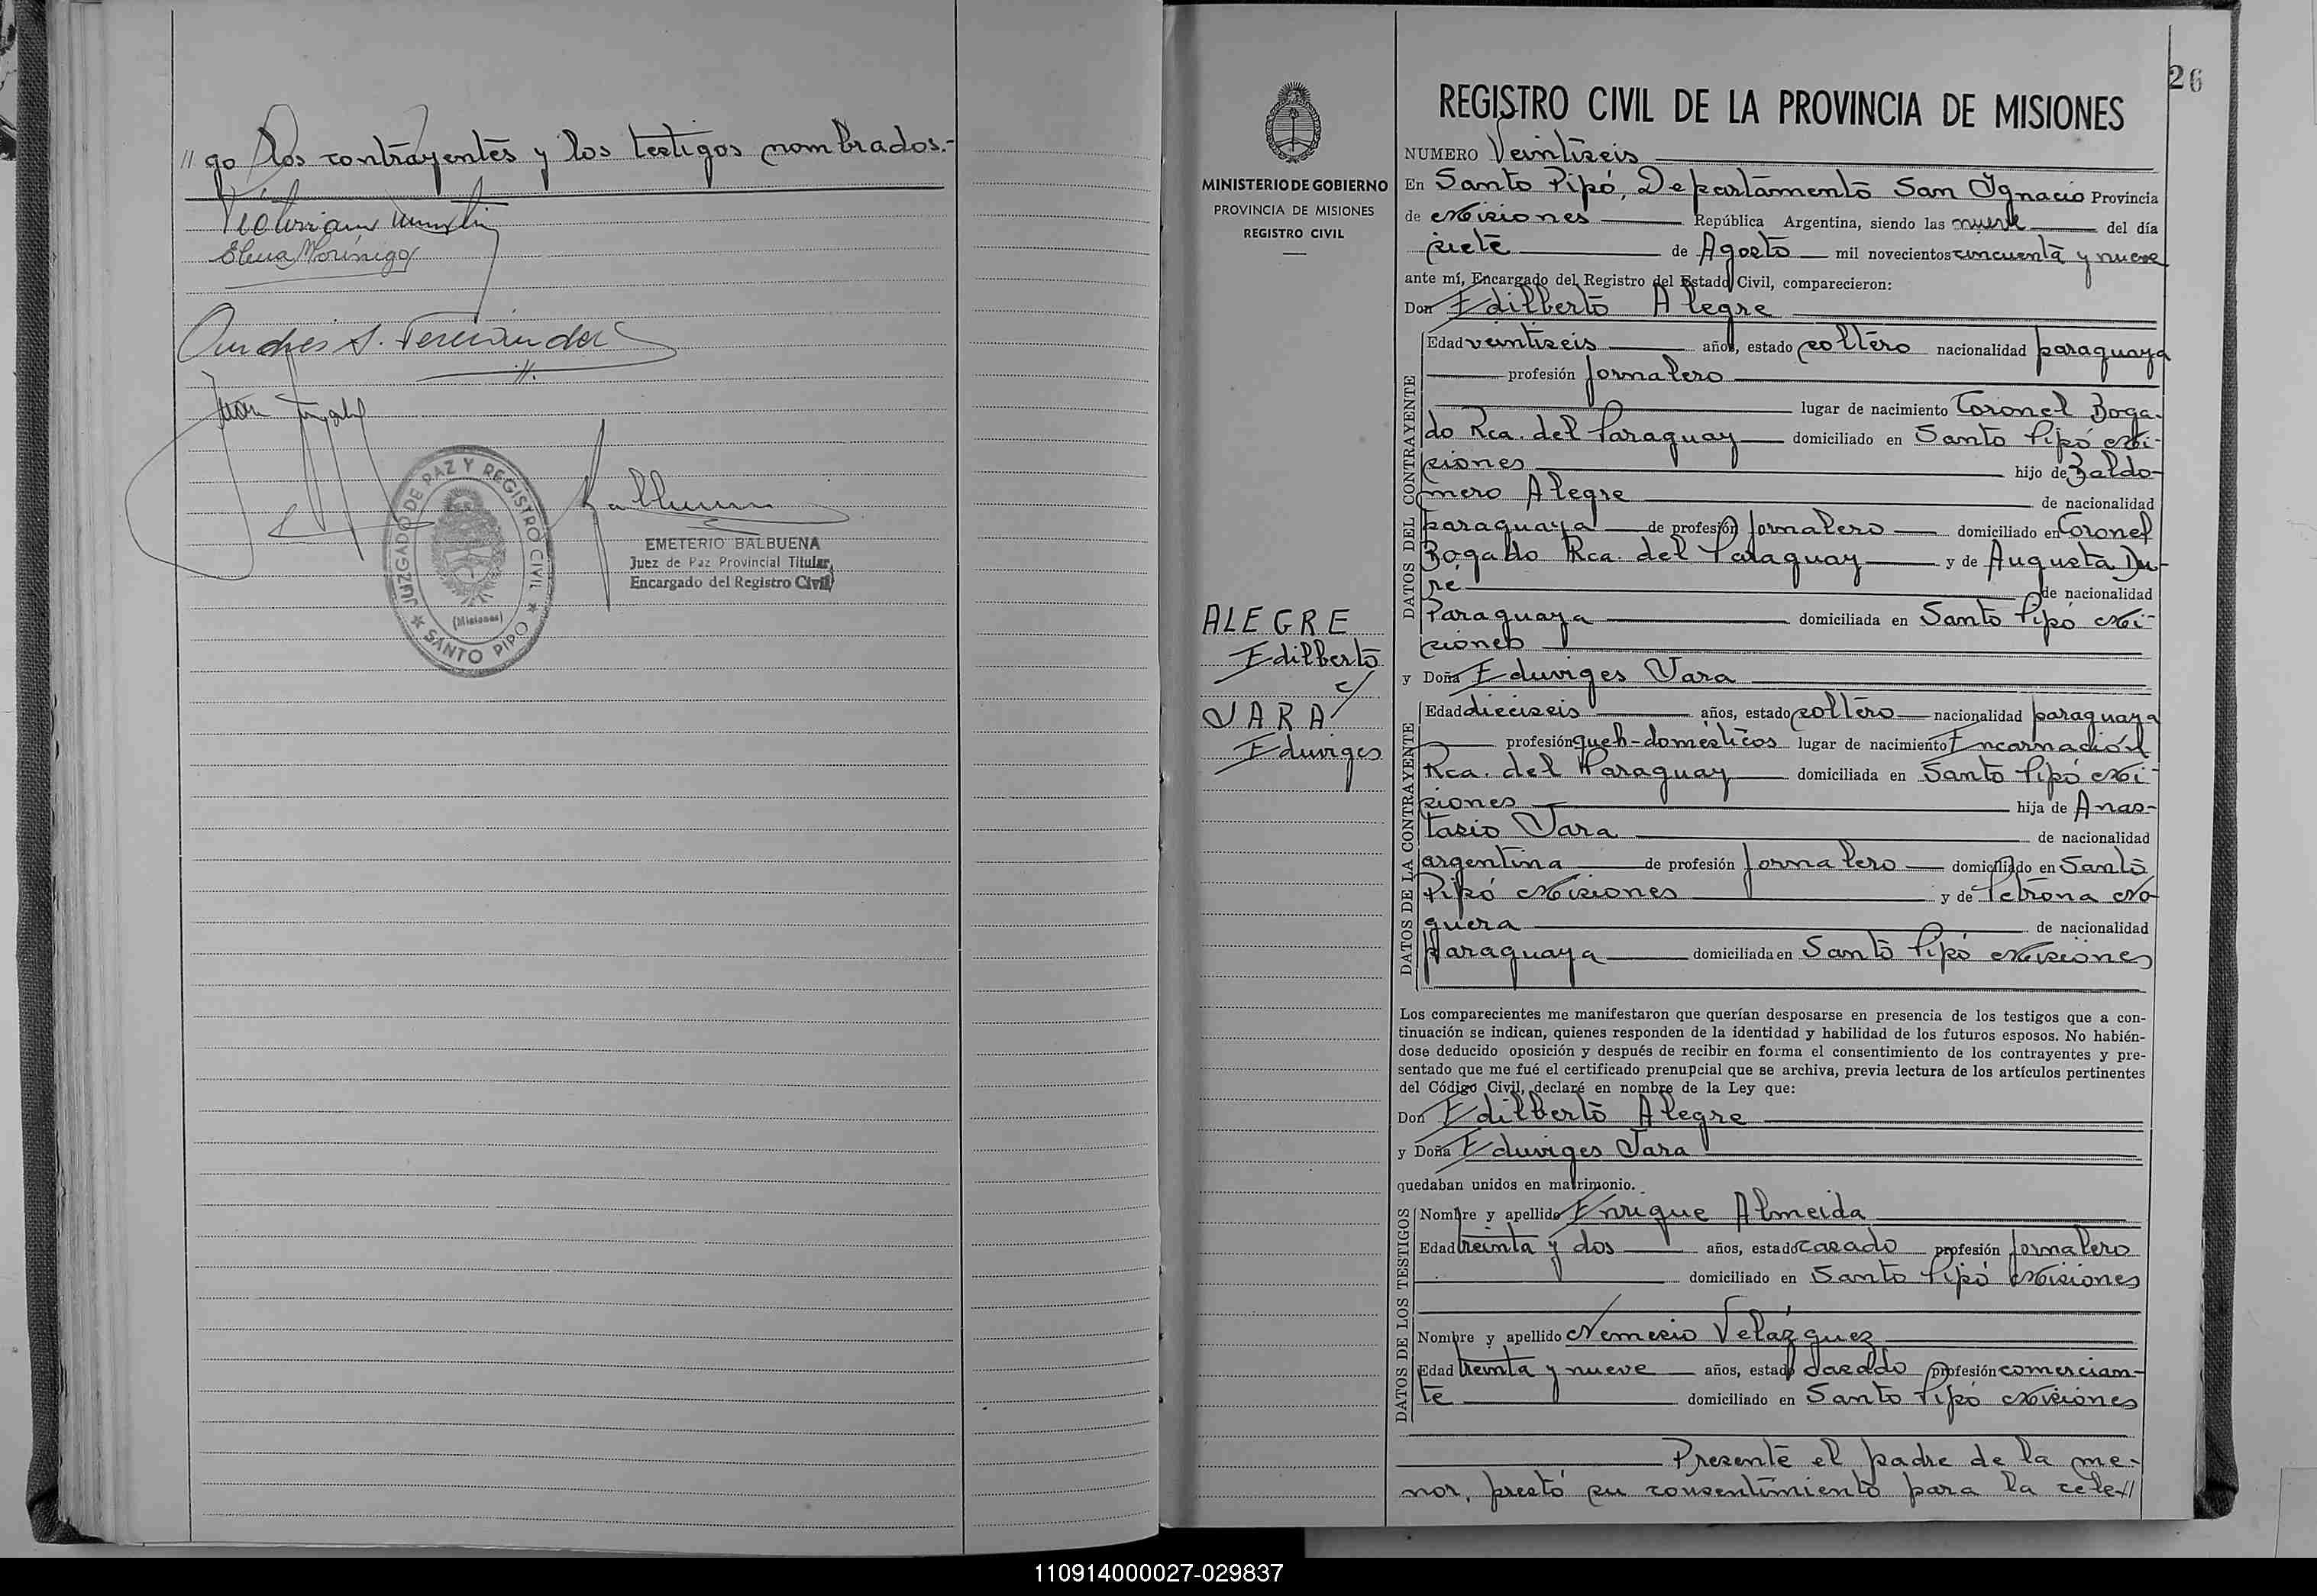 // go los contrayentes y los testigos nombrados.-
Elena Morinigo
Andrés S. Fernández
Juan
JUZGADO DE PAZ Y REGISTRO CIVIL
(Misiones)
★ SANTO PIPO ★
EMETERIO BALBUENA
Juez de Paz Provincial Titular
Encargado del Registro Civil
26
MINISTERIO DE GOBIERNO
PROVINCIA DE MISIONES
REGISTRO CIVIL
ALEGRE
Edilberto
c/
JARA
Eduviges
REGISTRO CIVIL DE LA PROVINCIA DE MISIONES
NUMERO Veintiseis
En Santo Pipó, Departamento San Ignacio Provincia
de Misiones República Argentina, siendo las nueve del día
siete de Agosto mil novecientos cincuenta y nueve
ante mí, Encargado del Registro del Estado Civil, comparecieron:
Don Edilberto Alegre
DATOS DEL CONTRAYENTE
Edad veintiseis años, estado soltero nacionalidad paraguaya
profesión jornalero
lugar de nacimiento Coronel Boga-
do Rca. del Paraguay domiciliado en Santo Pipó Mi-
siones hijo de Baldo-
mero Alegre de nacionalidad
paraguaya de profesión jornalero domiciliado en Coronel
Bogado Rca. del Paraguay y de Augusta Du-
ré de nacionalidad
Paraguaya domiciliada en Santo Pipó Mi-
siones
y Doña Eduviges Jara
DATOS DE LA CONTRAYENTE
Edad dieciseis años, estado soltero nacionalidad paraguaya
profesión queh-domésticos lugar de nacimiento Encarnación
Rca. del Paraguay domiciliada en Santo Pipó Mi-
siones hija de Anas-
tasio Jara de nacionalidad
argentina de profesión jornalero domiciliado en Santo
Pipó Misiones y de Petrona No-
guera de nacionalidad
Paraguaya domiciliada en Santo Pipó Misiones
Los comparecientes me manifestaron que querían desposarse en presencia de los testigos que a con-
tinuación se indican, quienes responden de la identidad y habilidad de los futuros esposos. No habién-
dose deducido oposición y después de recibir en forma el consentimiento de los contrayentes y pre-
sentado que me fué el certificado prenupcial que se archiva, previa lectura de los artículos pertinentes
del Código Civil, declaré en nombre de la Ley que:
Don Edilberto Alegre
y Doña Eduviges Jara
quedaban unidos en matrimonio.
DATOS DE LOS TESTIGOS
Nombre y apellido Enrique Almeida
Edad treinta y dos años, estado casado profesión jornalero
domiciliado en Santo Pipó Misiones
Nombre y apellido Nemesio Velázquez
Edad treinta y nueve años, estado casado profesión comercian-
te domiciliado en Santo Pipó Misiones
Presente el padre de la me-
nor, prestó su consentimiento para la cele//
110914000027-029837